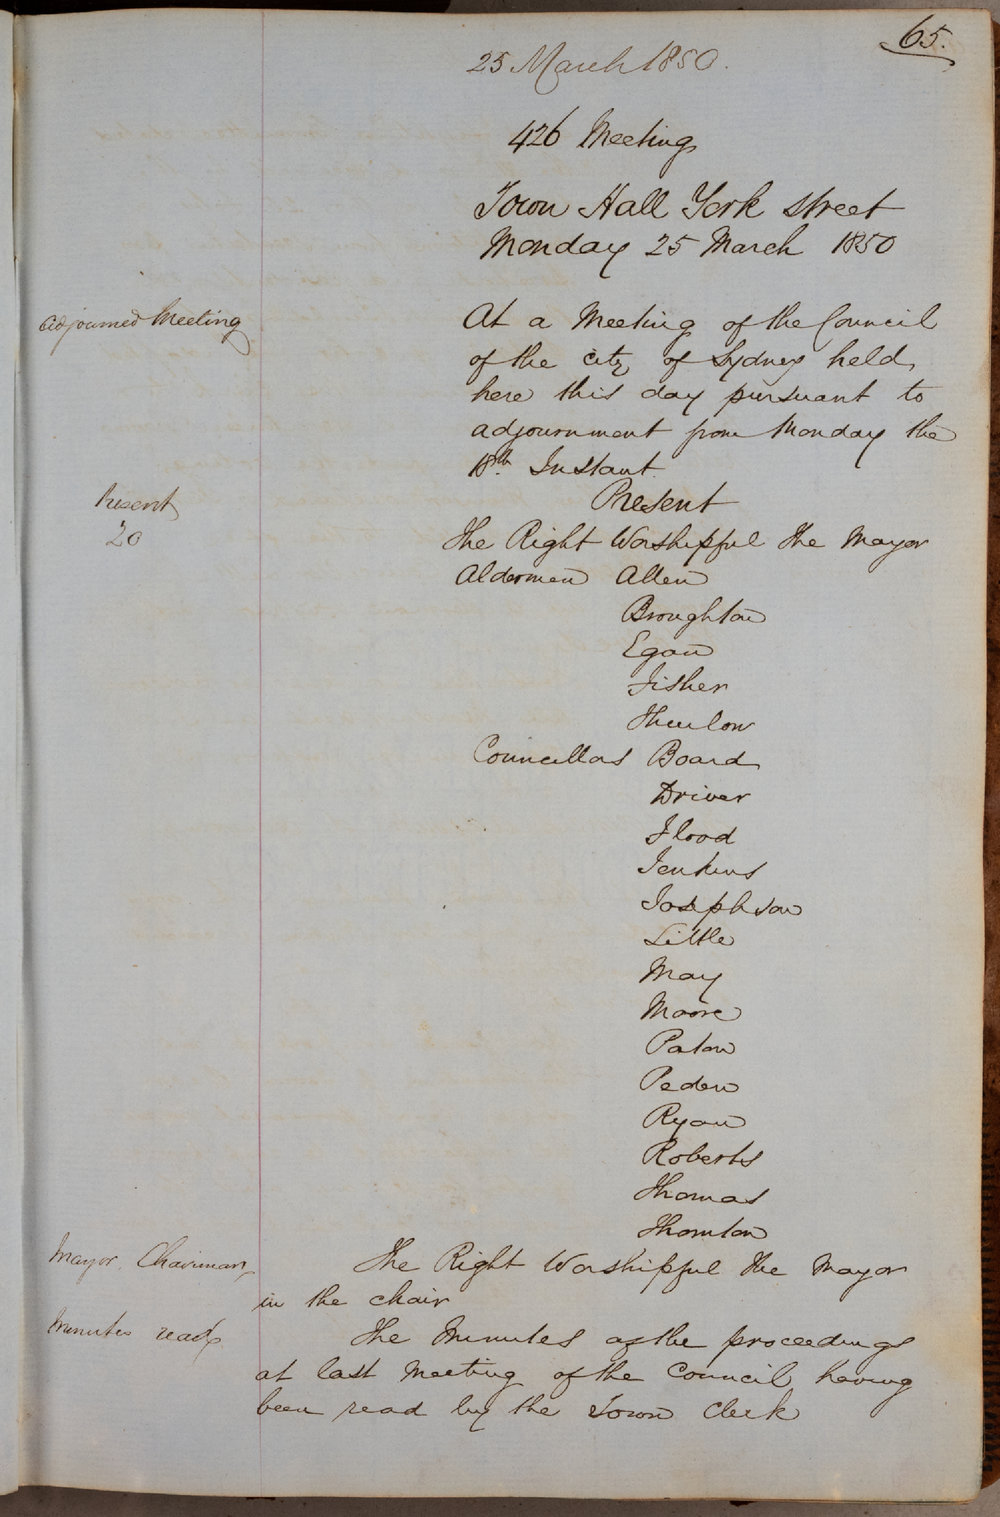 65.
25 March 1850.
426 Meeting
Town Hall York street
Monday 25 March 1850
adjourned Meeting
At a Meeting of the Council
of the city of Sydney held
here this day pursuant to
adjournment from Monday the
18th. Instant
Present
20
Present
The Right Worshipful the Mayor
Aldermen Allen
Broughton
Egan
Fisher
Thurlow
Councillors Board
Driver
Flood
Jenkins
Josephson
Little
May
Moore
Paton
Peden
Ryan
Roberts
Thomas
Thornton
Mayor. Chairman
The Right Worshipful the Mayor
in the chair
Minutes read
The Minutes of the proceedings
at last Meeting of the Council having
been read by the Town Clerk